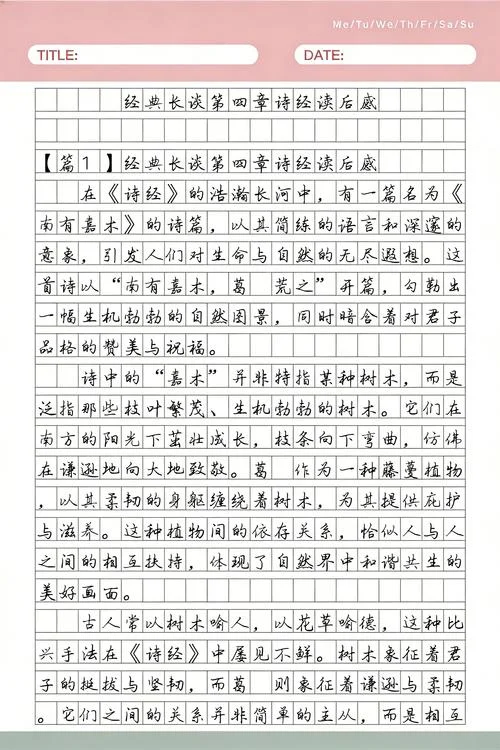 Me/Tu/We/Th/Fr/Sa/Su
TITLE: DATE:
经典长谈第四章诗经读后感
【篇1】经典长谈第四章诗经读后感
在《诗经》的浩瀚长河中，有一篇名为《
南有嘉木》的诗篇，以其简练的语言和深邃的
意象，引发人们对生命与自然的无尽遐想。这
首诗以“南有嘉木，葛 荒之”开篇，勾勒出
一幅生机勃勃的自然图景，同时暗含着对君子
品格的赞美与祝福。
诗中的“嘉木”并非特指某种树木，而是
泛指那些枝叶繁茂、生机勃勃的树木。它们在
南方的阳光下茁壮成长，枝条向下弯曲，仿佛
在谦逊地向大地致敬。葛 作为一种藤蔓植物
，以其柔韧的身躯缠绕着树木，为其提供庇护
与滋养。这种植物间的依存关系，恰似人与人
之间的相互扶持，体现了自然界中和谐共生的
美好画面。
古人常以树木喻人，以花草喻德，这种比
兴手法在《诗经》中屡见不鲜。树木象征着君
子的挺拔与坚韧，而葛 则象征着谦逊与柔韧
。它们之间的关系并非简单的主从，而是相互